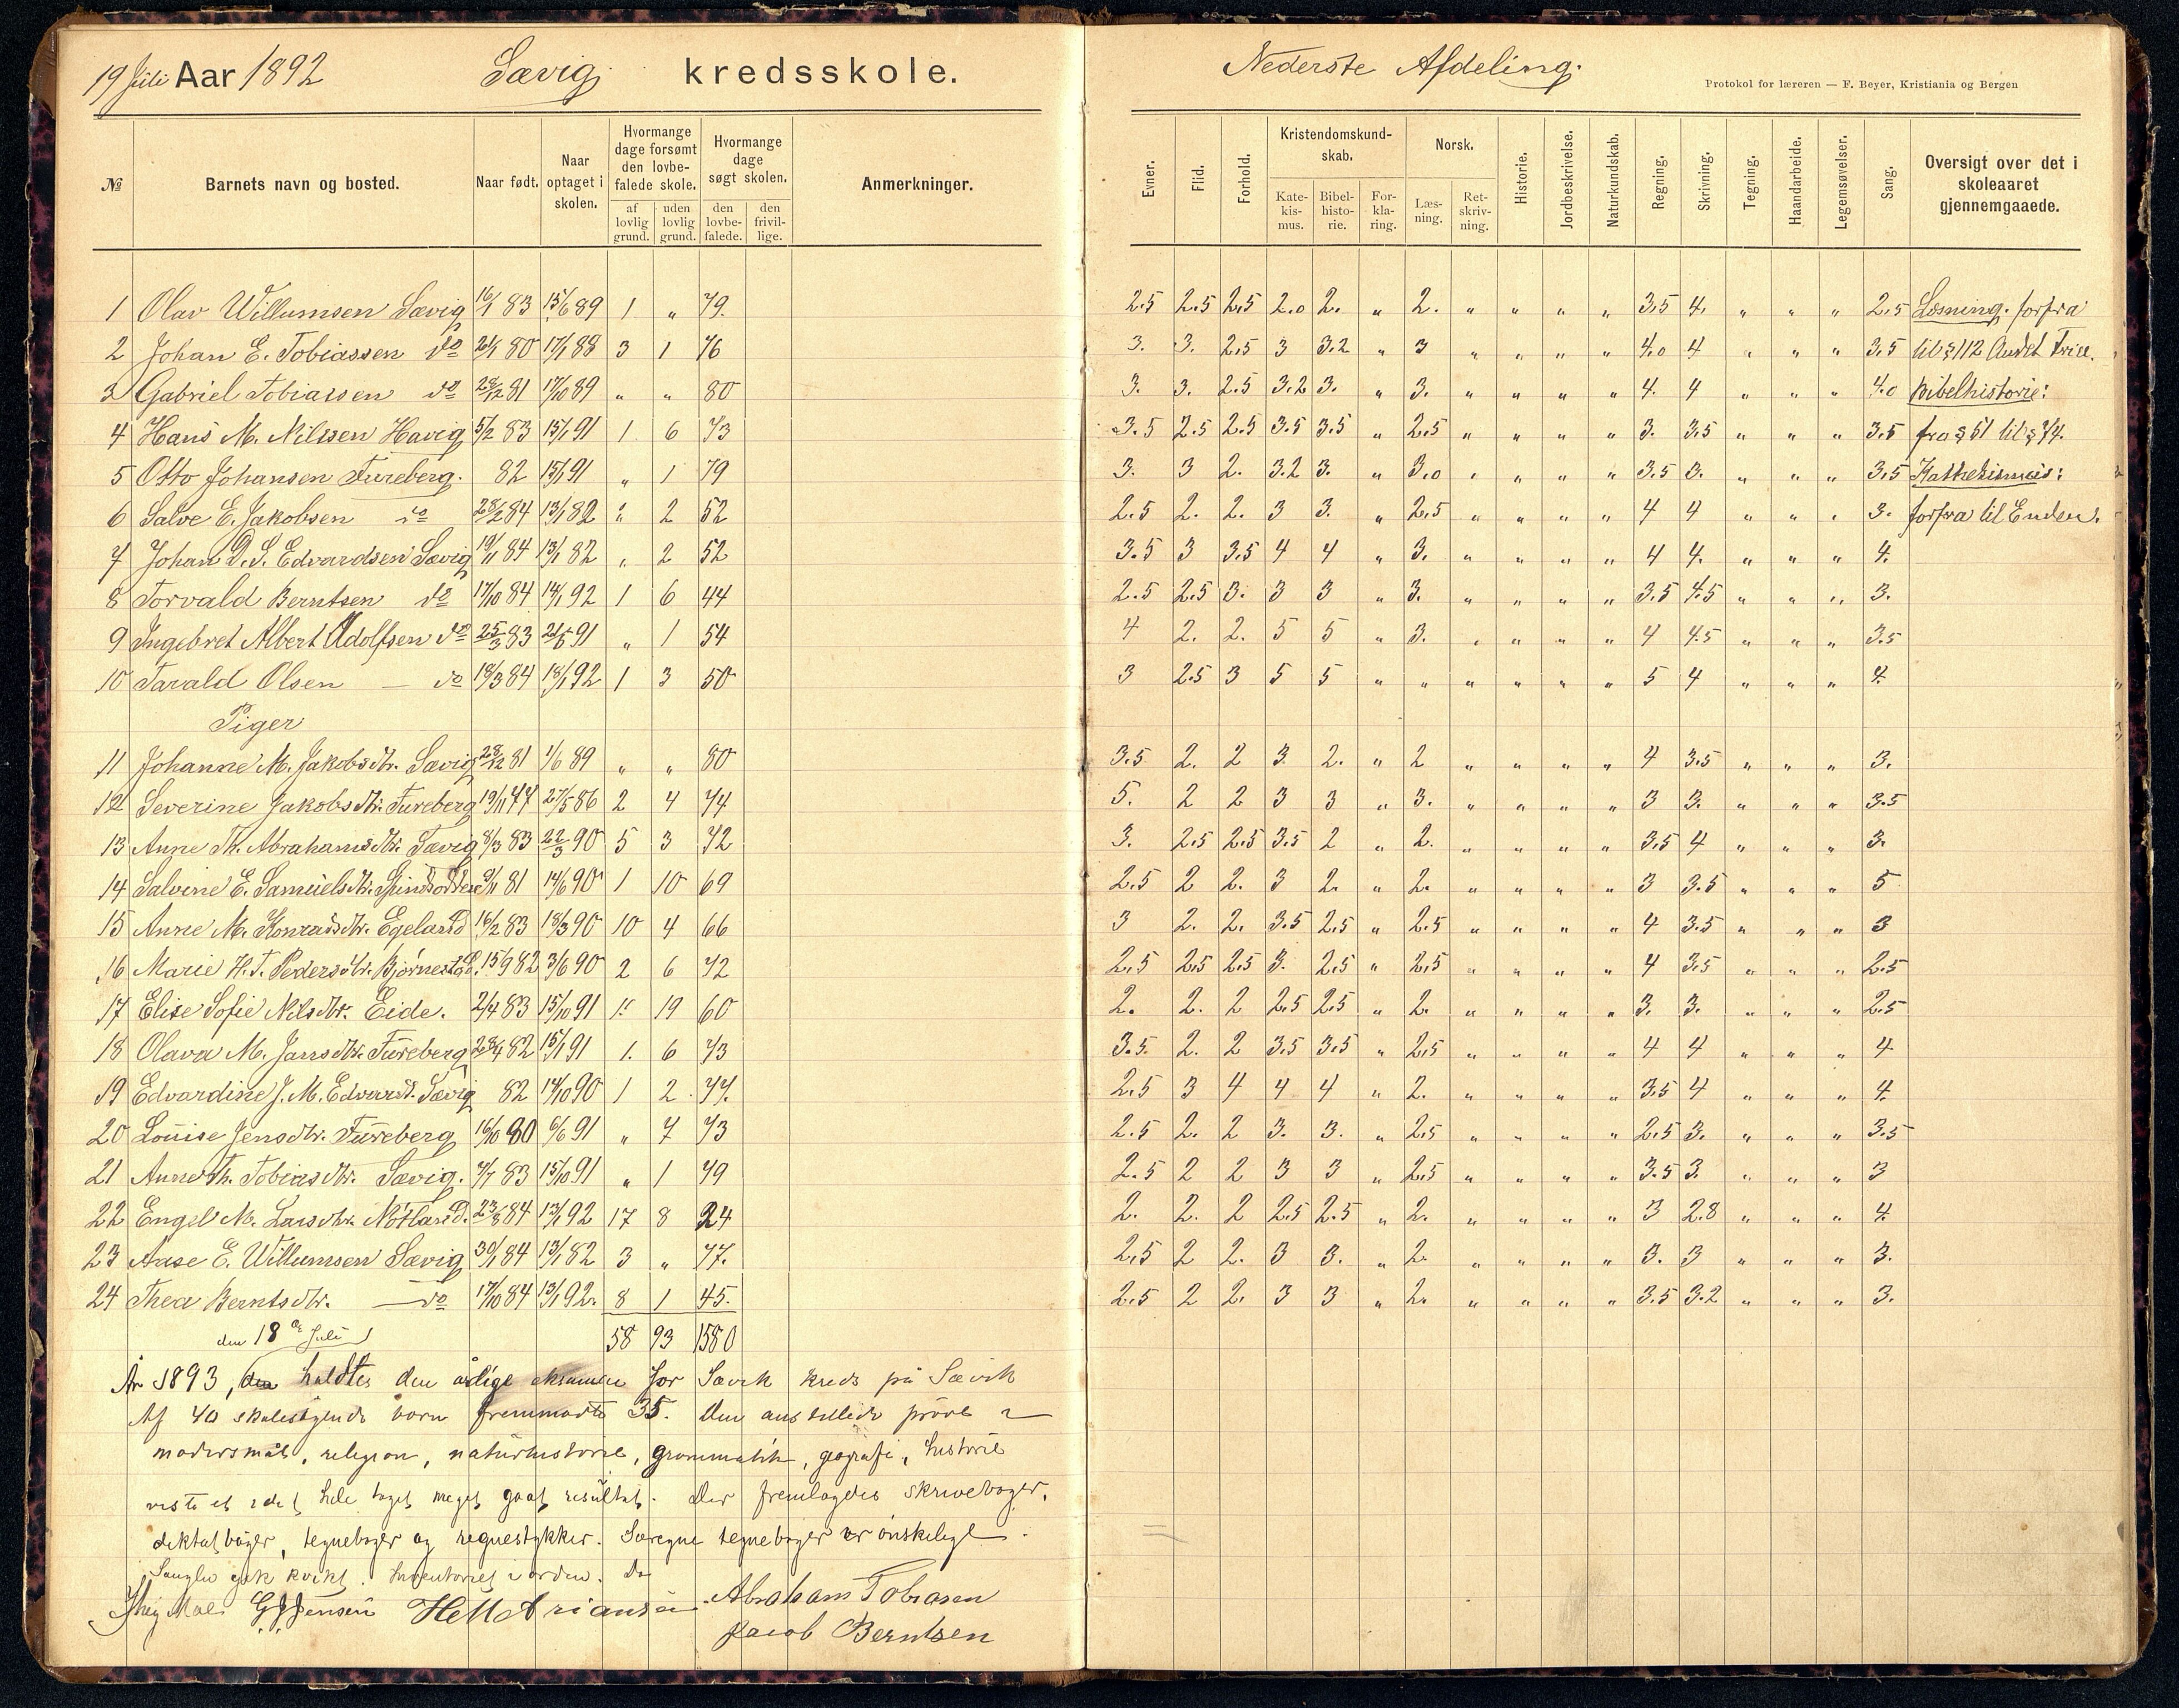 19 Juli Aar 1892 Sævig kredsskole.
№ Barnets navn og bosted. Naar født. Naar optaget i skolen. Hvormange dage forsømt den lovbefalede skole. af lovlig grund. uden lovlig grund. Hvormange dage søgt skolen. den lovbefalede. den frivillige. Anmerkninger.
1 Olav Willumsen Sævig 16/1 83 15/6 89 1 " 79.
2 Johan E. Tobiassen do 21/1 80 17/1 88 3 1 76
3 Gabriel Tobiassen do 28/12 81 17/10 89 " " 80
4 Hans M. Nilssen Havig 5/2 83 15/1 91 1 6 73
5 Otto Johansen Fureberg. 82 15/1 91 " 1 79
6 Salve E. Jakobsen do 28/2 84 13/1 82 " 2 52
7 Johan D. S. Edvardsen Sævig 19/11 84 13/1 82 " 2 52
8 Torvald Berntsen do 17/10 84 18/1 92 1 6 44
9 Ingebret Albert Adolfsen do 25/3 83 21/5 91 " 1 54
10 Tarald Olsen — do 18/3 84 18/1 92 1 3 50
Piger
11 Johanne M. Jakobsdtr. Sævig 28/12 81 1/6 89 " " 80
12 Severine Jakobsdtr. Fureberg 19/11 77 27/5 86 2 4 74
13 Anne Th. Abrahamsdtr. Sævig 8/3 83 22/3 90 5 3 72
14 Salvine E. Samuelsdtr. 9/11 81 14/6 90 1 10 69
15 Anne M. Konradsdtr. Egeland 16/2 83 18/3 90 10 4 66
16 Marie H. T. Pedersdtr. Bjørnestad. 15/9 82 3/6 90 2 6 72
17 Elise Sofie Nilsdtr. Eide. 2/4 83 15/10 91 1. 19 60
18 Olava M. Jansdtr. Fureberg 28/4 82 15/1 91 1. 6 73
19 Edvardine J. M. Edvardd. Sævig 82 14/10 90 1 2. 77.
20 Louise Jensdtr. Fureberg 16/10 80 6/6 91 " 7 73
21 Anne Th. Tobiasdtr. Sævig. 9/7 83 15/10 91 " 1 79
22 Engel M. Larsdtr. Nøtland. 23/8 84 13/1 92 17 8 24
23 Aase E. Willumsen Sævig 30/1 84 13/1 82 3 " 77.
24 Thea Berntsdtr. — do 17/10 84 13/1 92. 8 1 45.
den 18de Juli 58 93 1580
År 1893, den holdtes den årlige eksamen for Sævik kreds på Sævik
Af 40 skolesøgende børn fremmødte 35. Den anstillede prøve i
modersmål, religion, naturhistorie, grammatik, geografi, historie
viste et i det hele taget meget godt resultat. Der fremlagdes skrivebøger,
diktatbøger, tegnebøger og regnestykker. Særegne tegnebøger er ønskelige.
Sangen gik kvikt. Inventariet i orden. Do
G. J. Jensen Abraham Tobiasen
Jacob Berntsen
Nederste Afdeling.
Protokol for læreren — F. Beyer, Kristiania og Bergen
Evner. Flid. Forhold. Kristendomskundskab. Katekismus. Bibelhistorie. Forklaring. Norsk. Læsning. Retskrivning. Historie. Jordbeskrivelse. Naturkundskab. Regning. Skrivning. Tegning. Haandarbeide. Legemsøvelser. Sang. Oversigt over det i skoleaaret gjennemgaaede.
2.5 2.5 2.5 2.0 2. " 2. " " " " 3.5 4. " " " 2.5 Læsning. forfra
3. 3. 2.5 3 3.2 " 3 " " " " 4.0 4 " " " 3.5 til § 112 Andet Trin.
3. 3. 2.5 3.2 3. " 3. " " " " 4. 4 " " " 4.0 Bibelhistorie:
3.5 2.5 2.5 3.5 3.5 " 2.5 " " " " 3. 3.5 " " " 3.5 fra § 51 til § 74.
3. 3 2. 3.2 3. " 3.0 " " " " 3.5 3. " " " 3.5 Kathekismus:
2.5 2. 2. 3 3. " 2.5 " " " " 4 4 " " " 3. forfra til Enden.
3.5 3 3.5 4 4 " 3. " " " " 4 4. " " " 4.
2.5 2.5 3. 3 3 " 3. " " " " 3.5 4.5 " " " 3.
4 2. 2. 5 5 " 3. " " " " 4 4.5 " " " 3.5
3 2.5 3 5 5 " " " " " " 5 4 " " " 4.
3.5 2. 2 3. 2. " 2 " " " " 4 3.5 " " " 3.
5. 2 2 3 3 " 3. " " " " 3 3. " " " 3.5
3. 2.5 2.5 3.5 2 " 2. " " " " 3.5 4 " " " 3.
2.5 2 2. 3 2. " 2. " " " " 3 3.5 " " " 5
3 2. 2. 3.5 2.5 " 2.5 " " " " 4 3.5 " " " 3
2.5 2.5 2.5 3. 2.5 " 2.5 " " " " 4 3.5 " " " 2.5
2. 2. 2 2.5 2.5 " 2. " " " " 3. 3. " " " 2.5
3.5. 2. 2 3.5 3.5 " 2.5 " " " " 4 4 " " " 4
2.5 3 4 4 4 " 2. " " " " 3.5 4 " " " 4.
2.5 2. 2 3. 3. " 2.5 " " " " 2.5 3. " " " 3.5
2.5 2 2 3 3 " 2.5 " " " " 3.5 3. " " " 3
2. 2. 2 2.5 2.5 " 2. " " " " 3 2.8 " " " 4.
2.5 2 2. 3 3. " 2. " " " " 3. 3 " " " 3.
2.5 2 2. 3 3 " 2. " " " " 3.5 3.2 " " " 3.